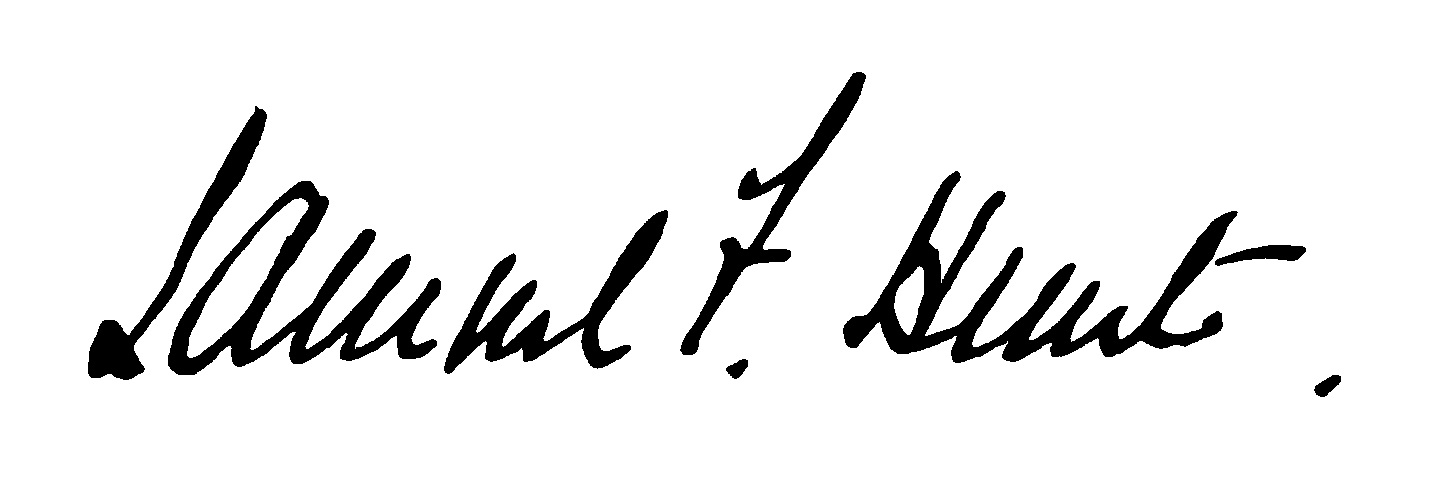 Samuel F. Hunt.